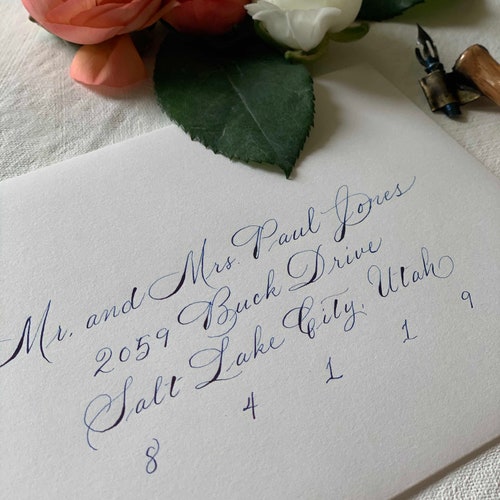 Mr. and Mrs. Paul Jones
2059 Buck Drive
Salt Lake City, Utah
8 4 1 1 9